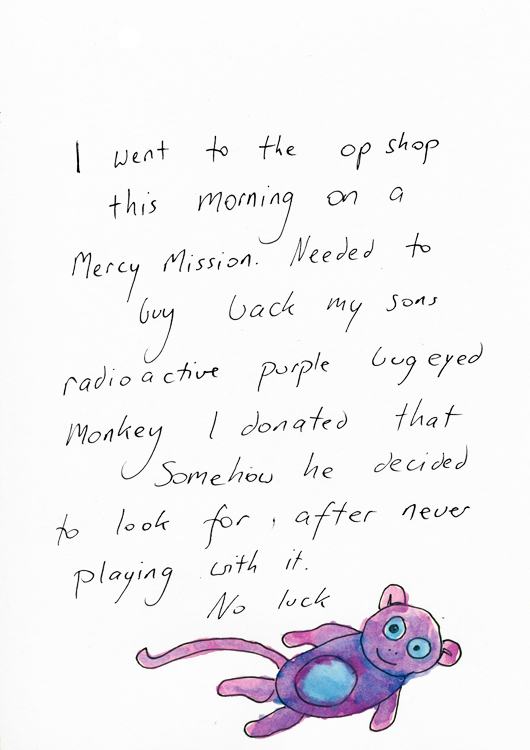 I went to the op shop
this morning on a
Mercy Mission. Needed to
buy back my sons
radioactive purple bug eyed
Monkey I donated that
Somehow he decided
to look for, after never
playing with it.
No luck